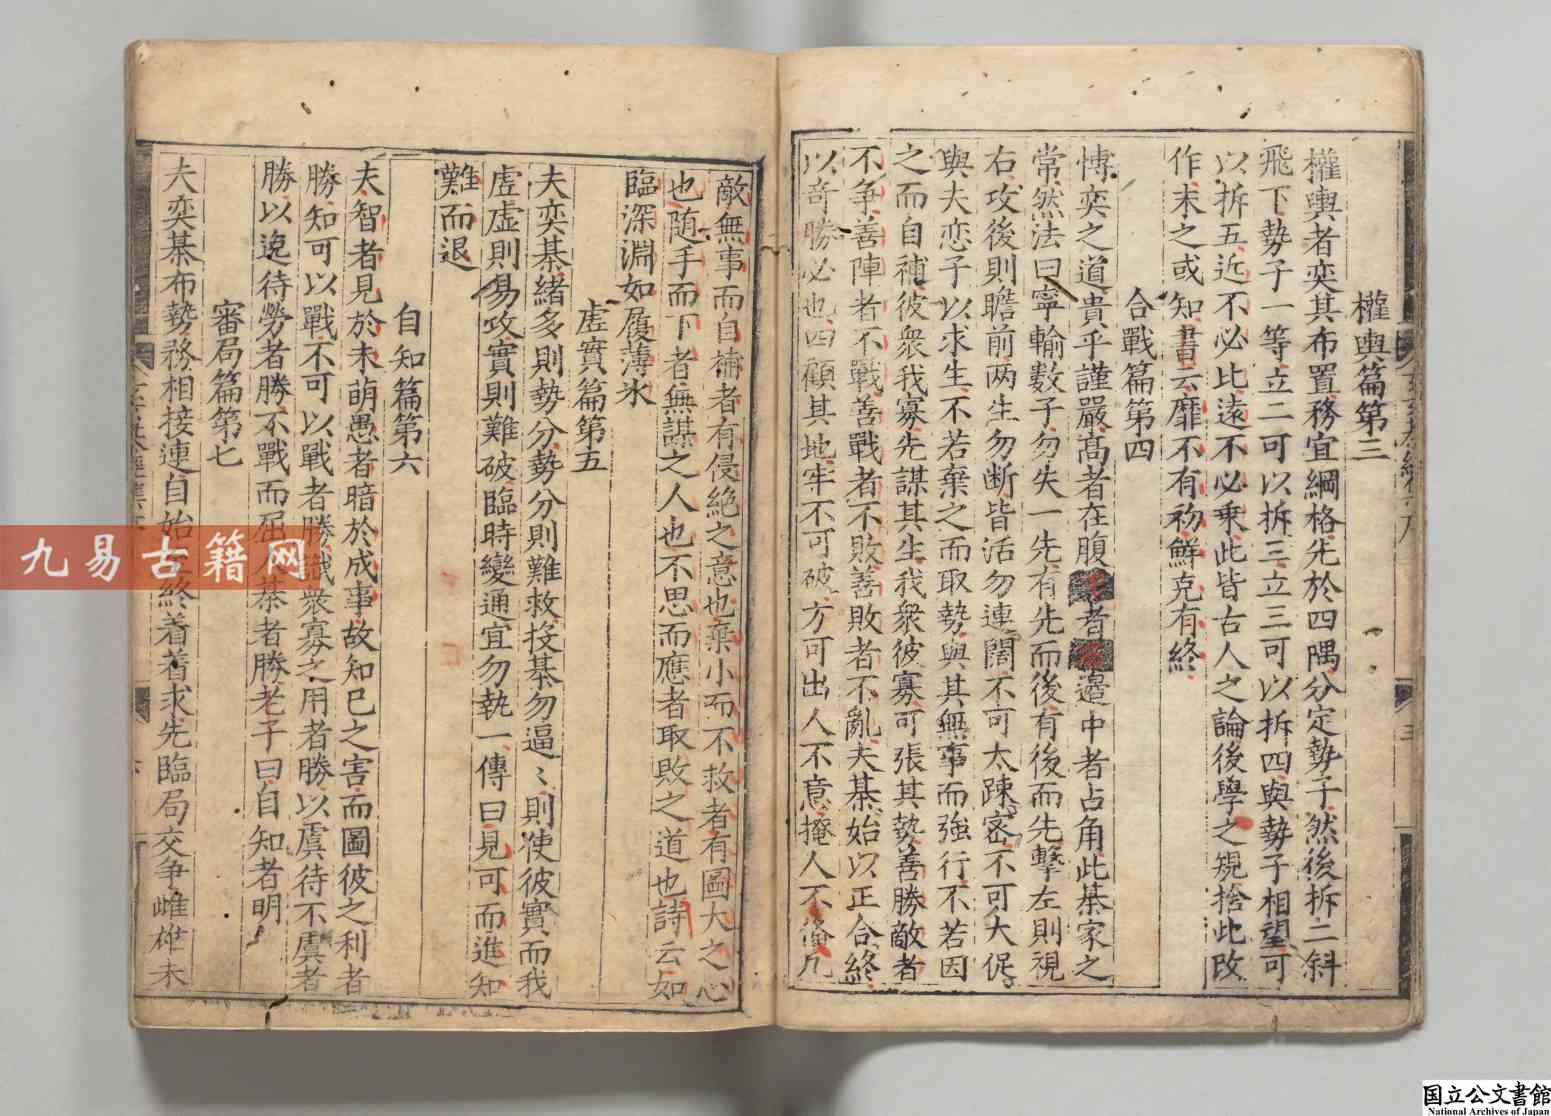 權輿篇第三
權輿者奕其布置務宜綱格先於四隅分定勢子然後拆二斜
飛下勢子一等立二可以拆三立三可以拆四與勢子相望可
以拆五近不必比遠不必乗此皆古人之論後學之規捨此改
作未之或知書云靡不有初鮮克有終
合戰篇第四
愽奕之道貴乎謹嚴髙者在腹 者 邉中者占角此棊家之
常然法曰寧輸數子勿失一先有先而後有後而先擊左則視
右攻後則瞻前两生勿断皆活勿連闊不可太踈宻不可大促
與夫恋子以求生不若棄之而取勢與其無事而強行不若因
之而自補彼衆我寡先謀其生我衆彼寡可張其勢善勝敵者
不争善陣者不戰善戰者不敗善敗者不亂夫棊始以正合終
以竒勝必也四顧其地牢不可破方可出人不意掩人不 凡
敵無事而自補者有侵絶之意也棄小而不救者有圖大之心
也随手而下者無謀之人也不思而應者取敗之道也詩云如
臨深淵如履薄氷
虚實篇第五
夫奕棊緒多則勢分勢分則難救投棊勿逼〻則使彼實而我
虚虚則易攻實則難破臨時變通宜勿執一傳曰見可而進知
難而退
自知篇第六
夫智者見於未萌愚者暗於成事故知已之害而圖彼之利者
勝知可以戰不可以戰者勝識衆寡之用者勝以虞待不虞者
勝以逸待勞者勝不戰而屈人棊者勝老子曰自知者明
審局篇第七
夫奕棊布勢務相接連自始 終着着求先臨局交争雌雄未
九易古籍网
国立公文書館
National Archives of Japan